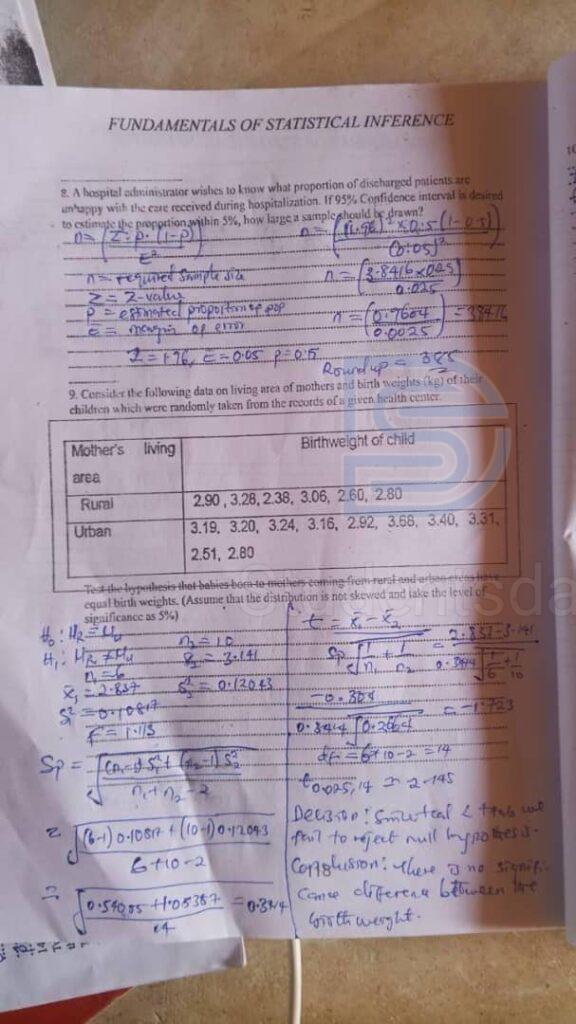 FUNDAMENTALS OF STATISTICAL INFERENCE
8. A hospital administrator wishes to know what proportion of discharged patients are
unhappy with the care received during hospitalization. If 95% Confidence interval is desired
to estimate the proportion within 5%, how large a sample should be drawn?
n = (Z² · p · (1-p) / E²)
n = required sample size
Z = Z-value
P = estimated proportion of pop
e = margin of error
Z = 1.96, E = 0.05 p = 0.5
n = ((1.96)² × 0.5 (1-0.5) / (0.05)²)
n = (3.8416 × 0.25 / 0.025)
n = (0.9604 / 0.0025) = 384.16
Round up = 385
9. Consider the following data on living area of mothers and birth weights (kg) of their
children which were randomly taken from the records of a given health center.
Mother's living area
Birthweight of child
Rural
2.90 , 3.28, 2.38, 3.06, 2.60, 2.80
Urban
3.19, 3.20, 3.24, 3.16, 2.92, 3.68, 3.40, 3.31,
2.51, 2.80
Test the hypothesis that babies born to mothers coming from rural and urban areas have
equal birth weights. (Assume that the distribution is not skewed and take the level of
significance as 5%)
H₀ : μR = μu
H₁ : μR ≠ μu
n₁ = 6
x̄₁ = 2.837
S₁² = 0.10817
F = 1.113
n₂ = 10
x̄₂ = 3.141
S₂² = 0.12043
Sp = √((n₁-1) S₁² + (n₂-1) S₂² / n₁ + n₂ - 2)
= √((6-1) 0.10817 + (10-1) 0.12043 / 6+10-2)
= √(0.54085 + 1.08387 / 14) = 0.3414
t = x̄₁ - x̄₂ / Sp √(1/n₁ + 1/n₂) = 2.837-3.141 / 0.3414 √(1/6 + 1/10)
-0.304 / 0.3414 √0.2664 = -1.723
df = 6+10-2 = 14
t0.025,14 = 2.145
Decision: Since tcal < ttab we
fail to reject null hypothesis.
Conclusion: There is no signifi-
cance difference between the
birthweight.